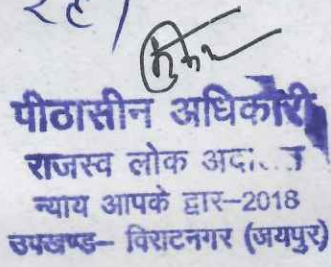 पीठासीन अधिकारी
राजस्व लोक
न्याय आपके द्वार–2018
उपखण्ड– विराटनगर (जयपुर)